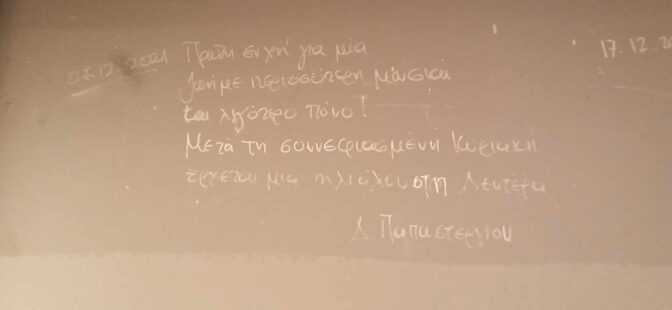 07.12.2021 Πρώτη ευχή για μία
ζωή με περισσότερη μουσική
και λιγότερο πόνο!
Μετά τη συννεφιασμένη Κυριακή
έρχεται μια ηλιόλουστη Δευτέρα
Δ. Παπαστεργίου
17.12.20